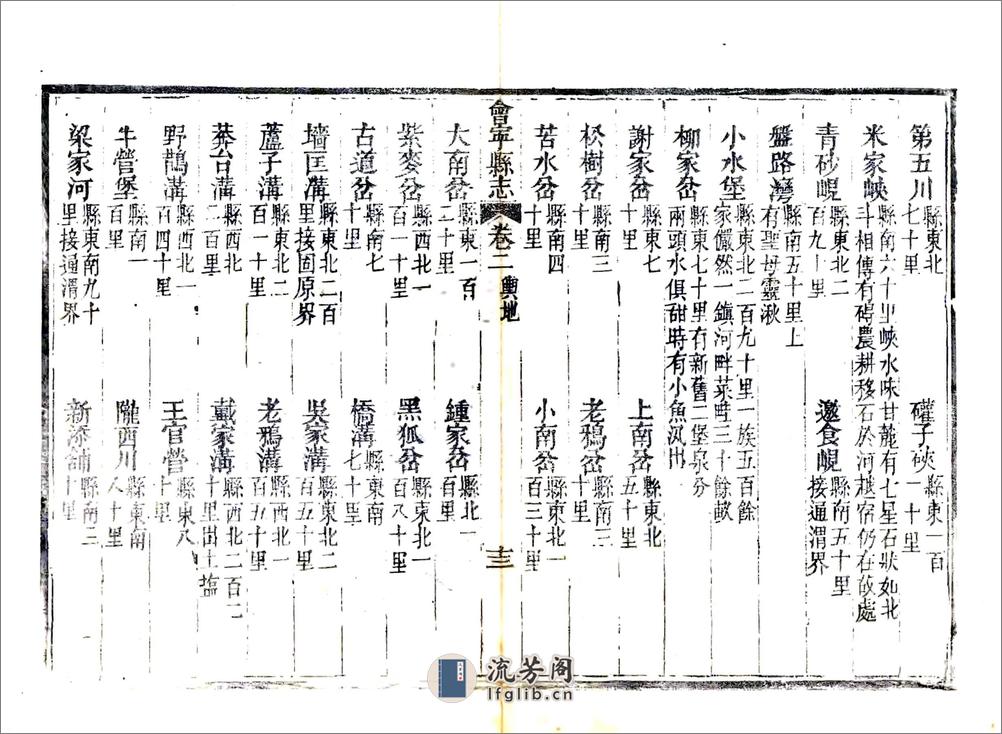 第五川縣東北七十里　礶子硤縣東一百一十里
米家峽縣南六十里峽水味甘麓有七星石狀如北斗相傳有碍農耕移石於河越宿仍在故處
青砂峴縣東北二百九十里　邀食峴縣南五十里接通渭界
盤路灣縣南五十里上有聖母靈湫
小水堡縣東北二百九十里一族五百餘家儼然一鎮河畔菜畦三十餘畝
柳家岔縣東七十里有新舊二堡泉分兩頭水俱甜時有小魚汎出
謝家岔縣東北七十里　上南岔縣東北五十里
松樹岔縣南三十里　老鴉岔縣南三十里
苦水岔縣南四十里　小南岔縣東北一百三十里
會寧縣志　卷二　輿地　十三
大南岔縣東一百二十里　鍾家岔縣北一百里
紫麥岔縣西北一百一十里　黑狐岔縣東北一百八十里
古道岔縣南七十里　橋溝縣東南七十里
墻匡溝縣東北二百里接固原界　吳家溝縣東北二百五十里
蘆子溝縣東北一百一十里　老鴉溝縣西北一百五十里
莽台溝縣西北二百里　戴家溝縣西北二百二十里出土塩
野鵲溝縣西北一百四十里　王官營縣東八十里
牛營堡縣南一百里　隴西川縣東南八十里
梁家河縣東南九十里接通渭界　新添舖縣南三十里
流芳阁
lfglib.cn